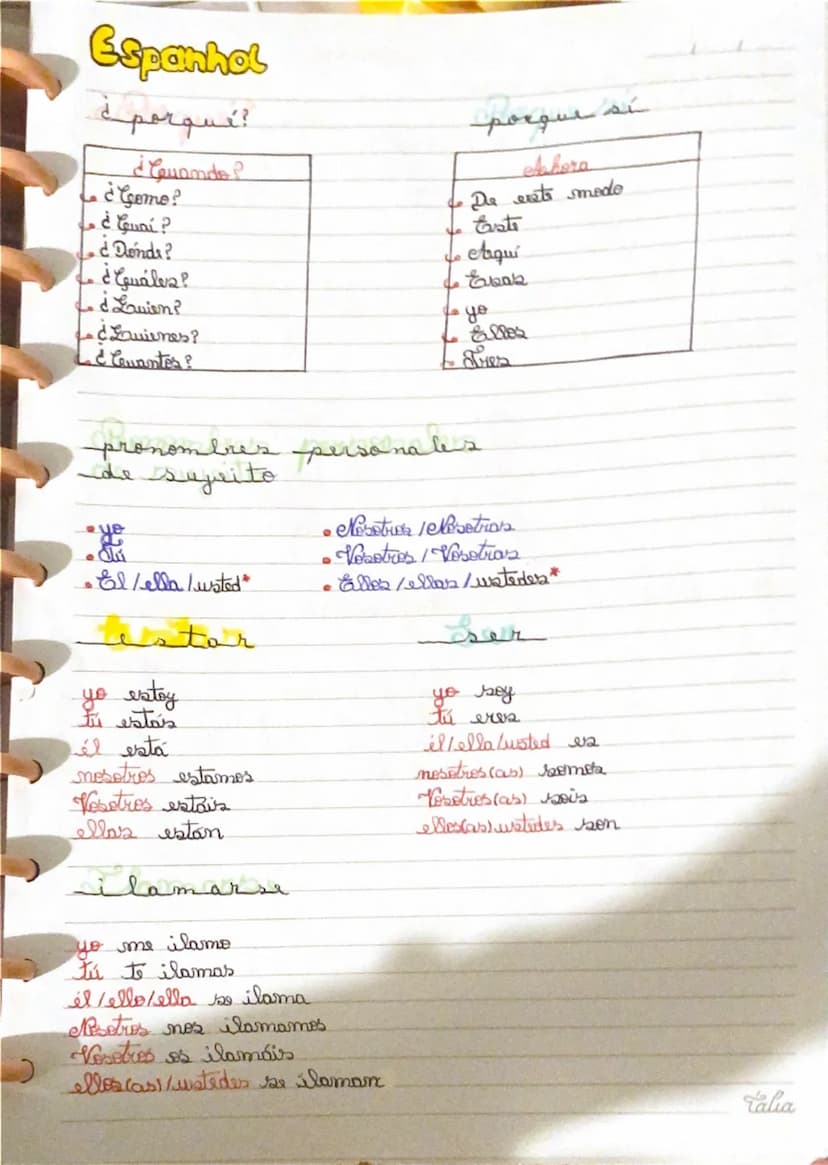 Espanhol
¿porqué?
porque sí
¿Cuando?
¿Como?
¿Cuai?
¿Dónde?
¿Cuáles?
¿Quien?
¿Quienes?
¿Cuantos?
Ahora
De este modo
Este
Aquí
Esas
yo
Ellos
Tres
pronombres personales
de sujeito
• yo
• Tú
• El/ella/usted*
• Nosotros/Nosotras
• Vosotros/Vosotras
• Ellos/ellas/ustedes*
estar
yo estoy
tú estás
él está
nosotros estamos
Vosotros estáis
ellas están
ser
yo soy
tú eres
él/ella/usted es
nosotros(as) somos
Vosotros(as) sois
ellos(as)/ustedes son
ilamarse
yo me ilamo
tú te ilamas
él/ello/ella se ilama
Nosotros nos ilamamos
Vosotros os ilamáis
ellos(as)/ustedes se ilaman
tália